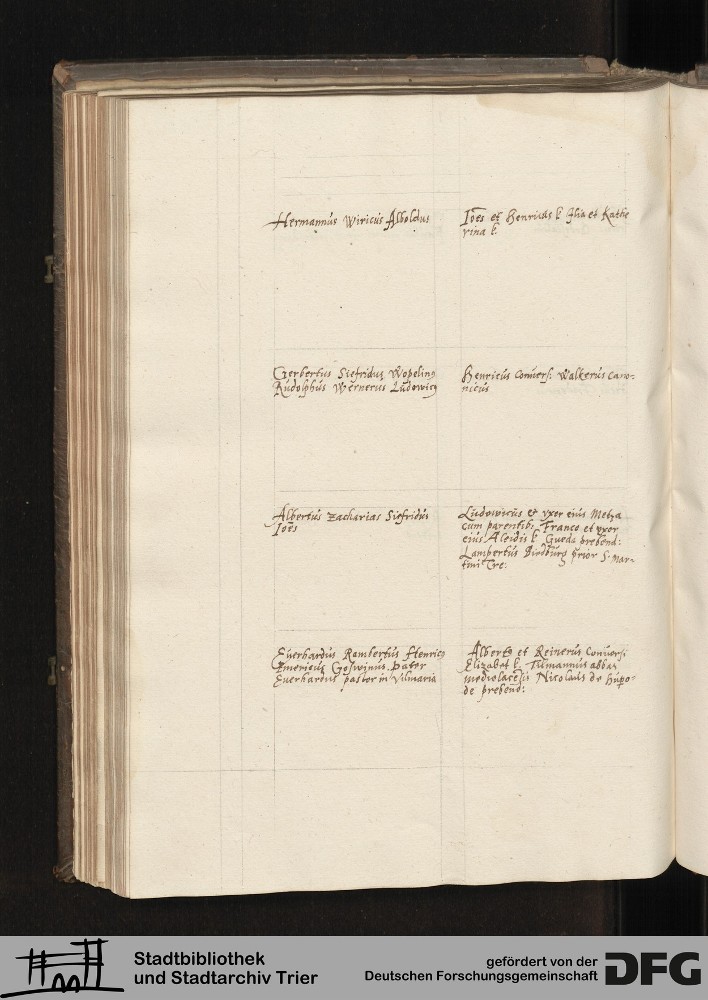 Hermannus Wiricus Alboldus
Ioēs et Henricus l: Ilia et Kathe
rina l:
Gerbertus Siefridus Wopelinꝰ
Rudolphus Wernerus Ludowicꝰ
Henricus Convers: Walterus cano-
nicus
Albertus Zacharias Siefridus
Ioēs
Ludowicus et vxor eius Metza
cum parentibꝰ Franco et vxor
eius Aleidis l: Gueda prebend:
Lampertus Birdburg prior S. Mar-
tini Tre:
Everhardus Rambertus Henricꝰ
Emericus Goswinus. pater
Everhardus pastor in Vilmaria
Albero et Reinerus Convers:
Elizabet l: Tilmannus abbas
mediolacēsis Nicolaus de
de prebend:
Stadtbibliothek
und Stadtarchiv Trier
gefördert von der
Deutschen Forschungsgemeinschaft
DFG